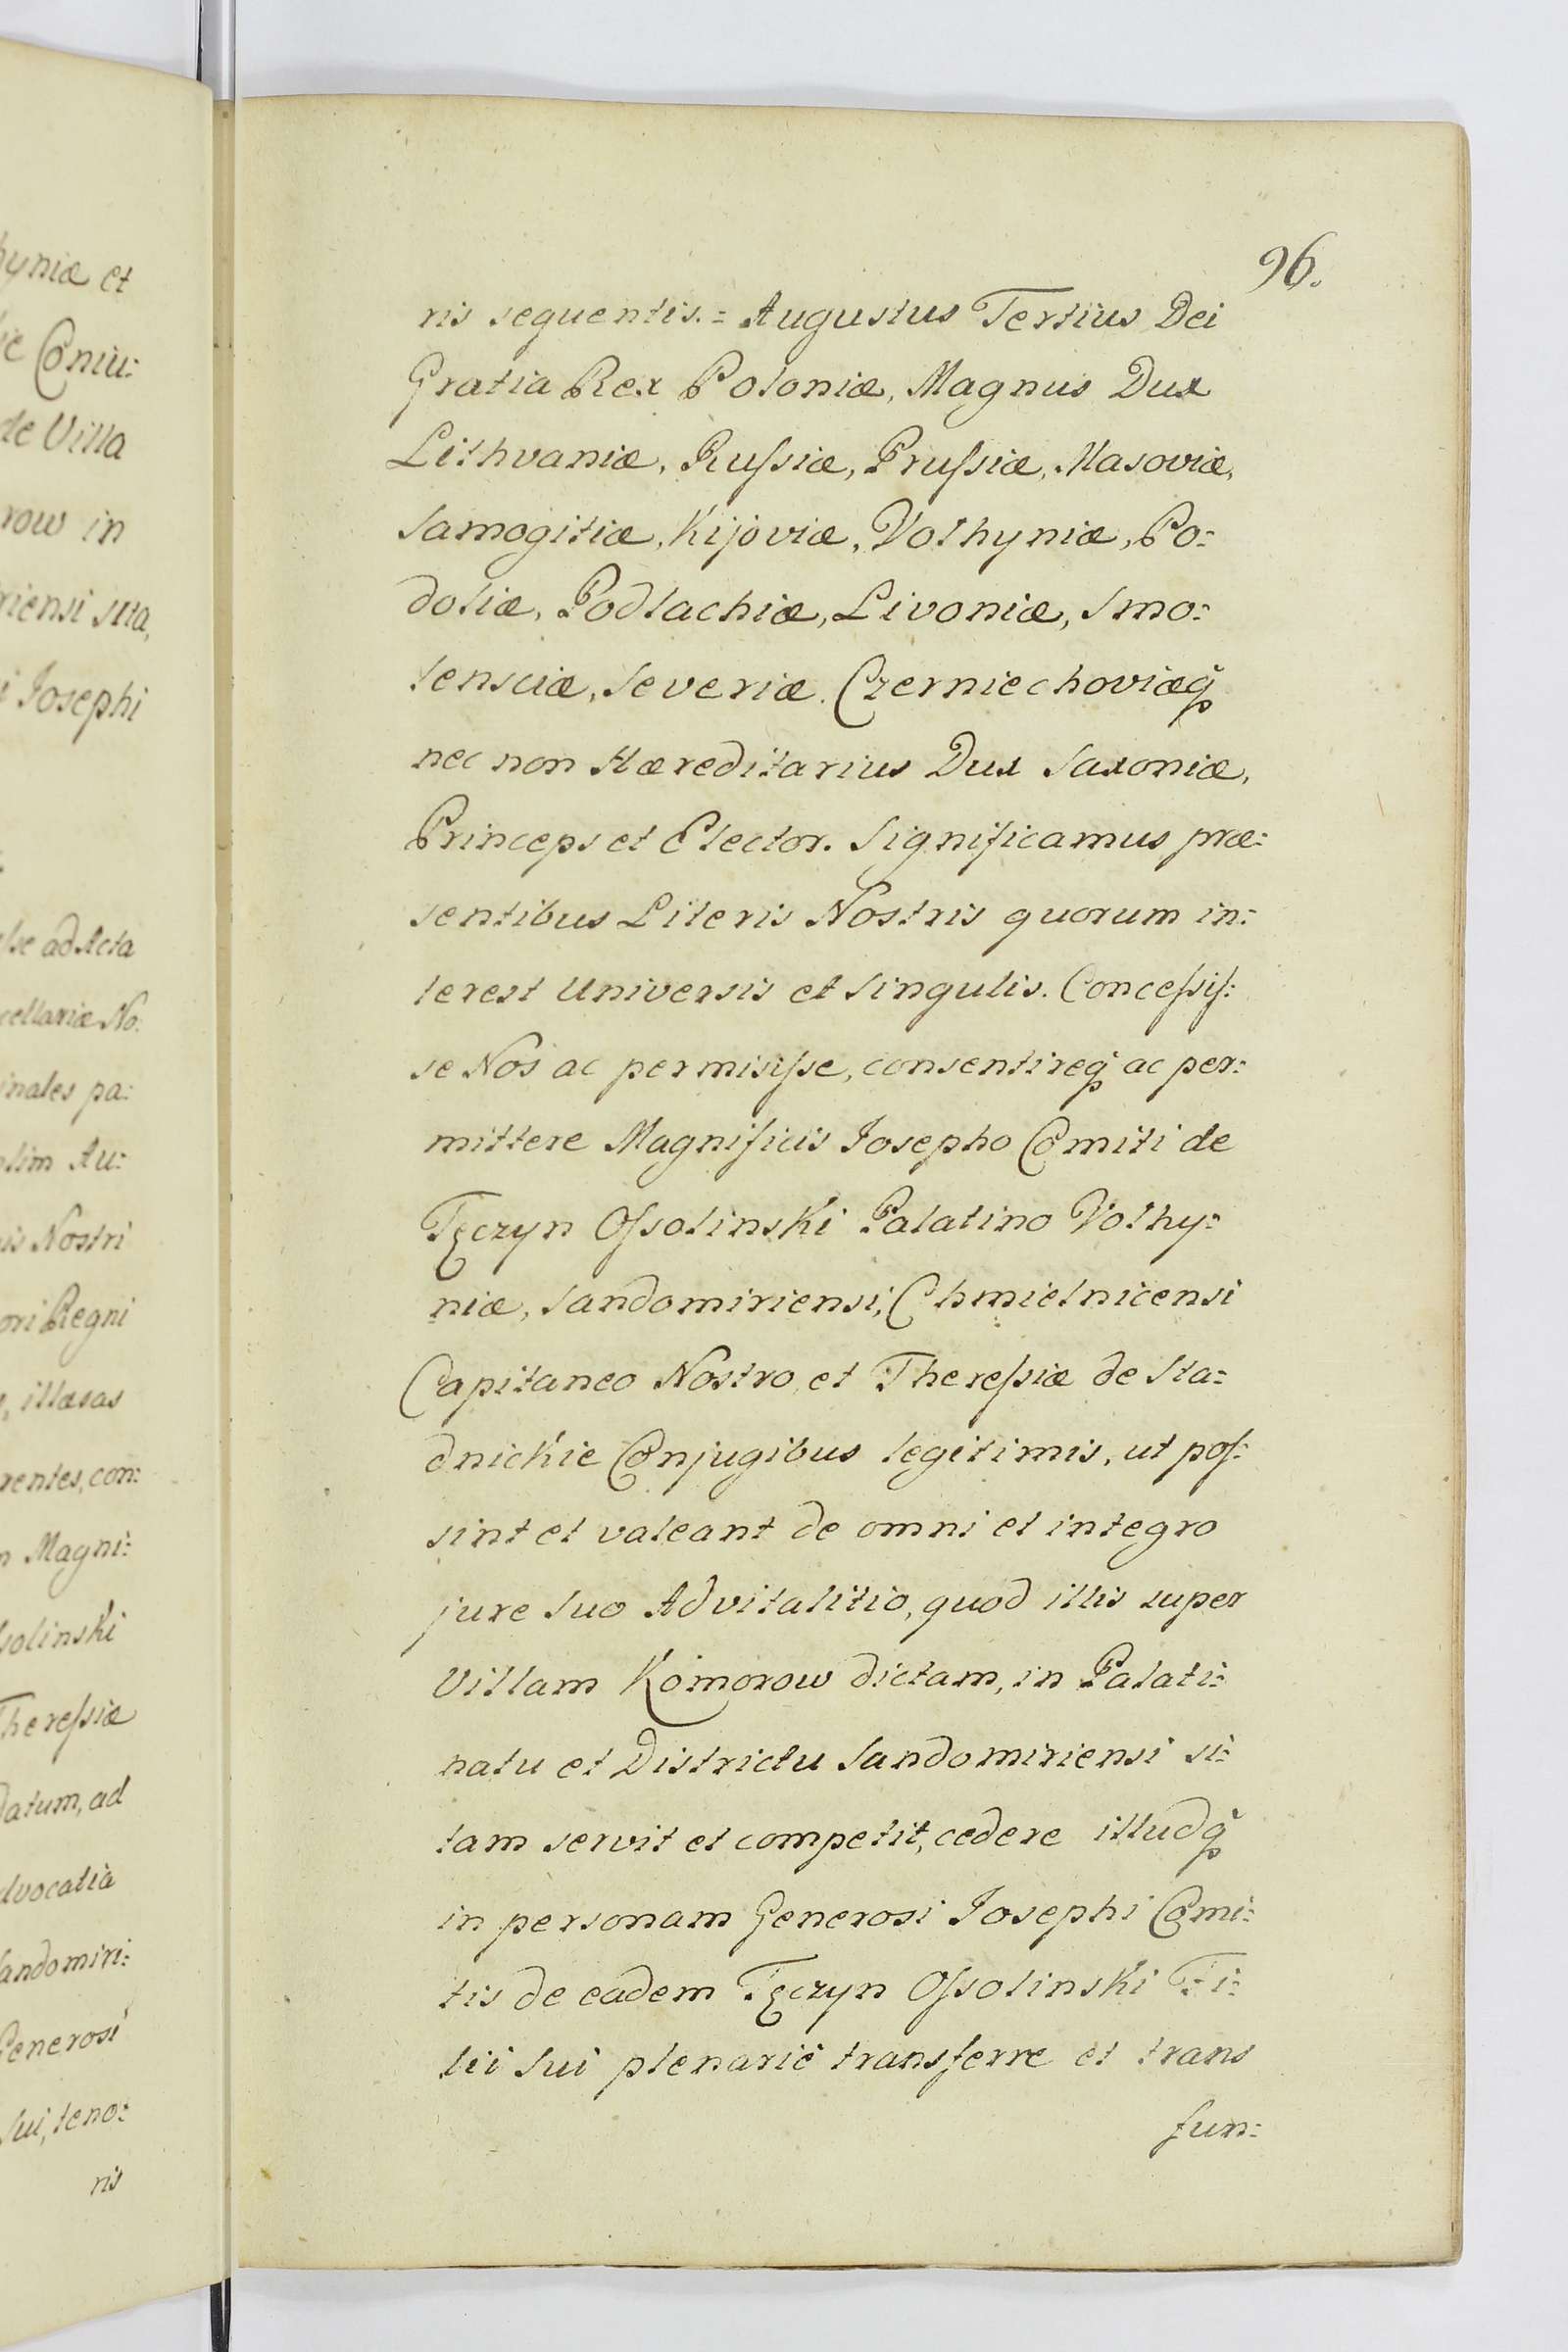 hyniæ et
Coniu:
de Villa
row in
riensi sita,
i Josephi
se ad Acta
cellariæ No:
inales pa:
olim Au:
is Nostri
ori Regni
illæsas
rentes, con:
Magni:
solinski
Theressiæ
datum, ad
dvocatia
Sandomiri:
Generosi
Sui, teno:
ris
96.
ris sequentis. = Augustus Tertius Dei
Gratia Rex Poloniæ, Magnus Dux
Lithvaniæ, Rußiæ, Prußiæ, Masoviæ,
Samogitiæ, Kijoviæ, Volhyniæ, Po:
doliæ, Podlachiæ, Livoniæ, Smo:
lensciæ, Severiæ. Czerniechoviæq̃
nec non Hæreditarius Dux Saxoniæ,
Princeps et Elector. Significamus præ:
sentibus Literis Nostris quorum in:
terest Universis et Singulis. Conceſsiſ:
se Nos ac permisiſse, consentireq̃ ac per:
mittere Magnificis Josepho Comiti de
Tęczyn Oſsolinski Palatino Volhy:
niæ, Sandomiriensi, Chmielnicensi
Capitaneo Nostro, et Thereſsiæ de Sta:
dnickie Conjugibus legitimis, ut poſ:
sint et valeant de omni et integro
jure Suo Advitalitio, quod illis super
Villam Komorow dictam, in Palati:
natu et Districtu Sandomiriensi si:
tam servit et competit, cedere illudq̃
in personam Generosi Josephi Comi:
tis de eadem Tęczyn Oſsolinski Fi:
lii Sui plenariè transferre et trans
fun: